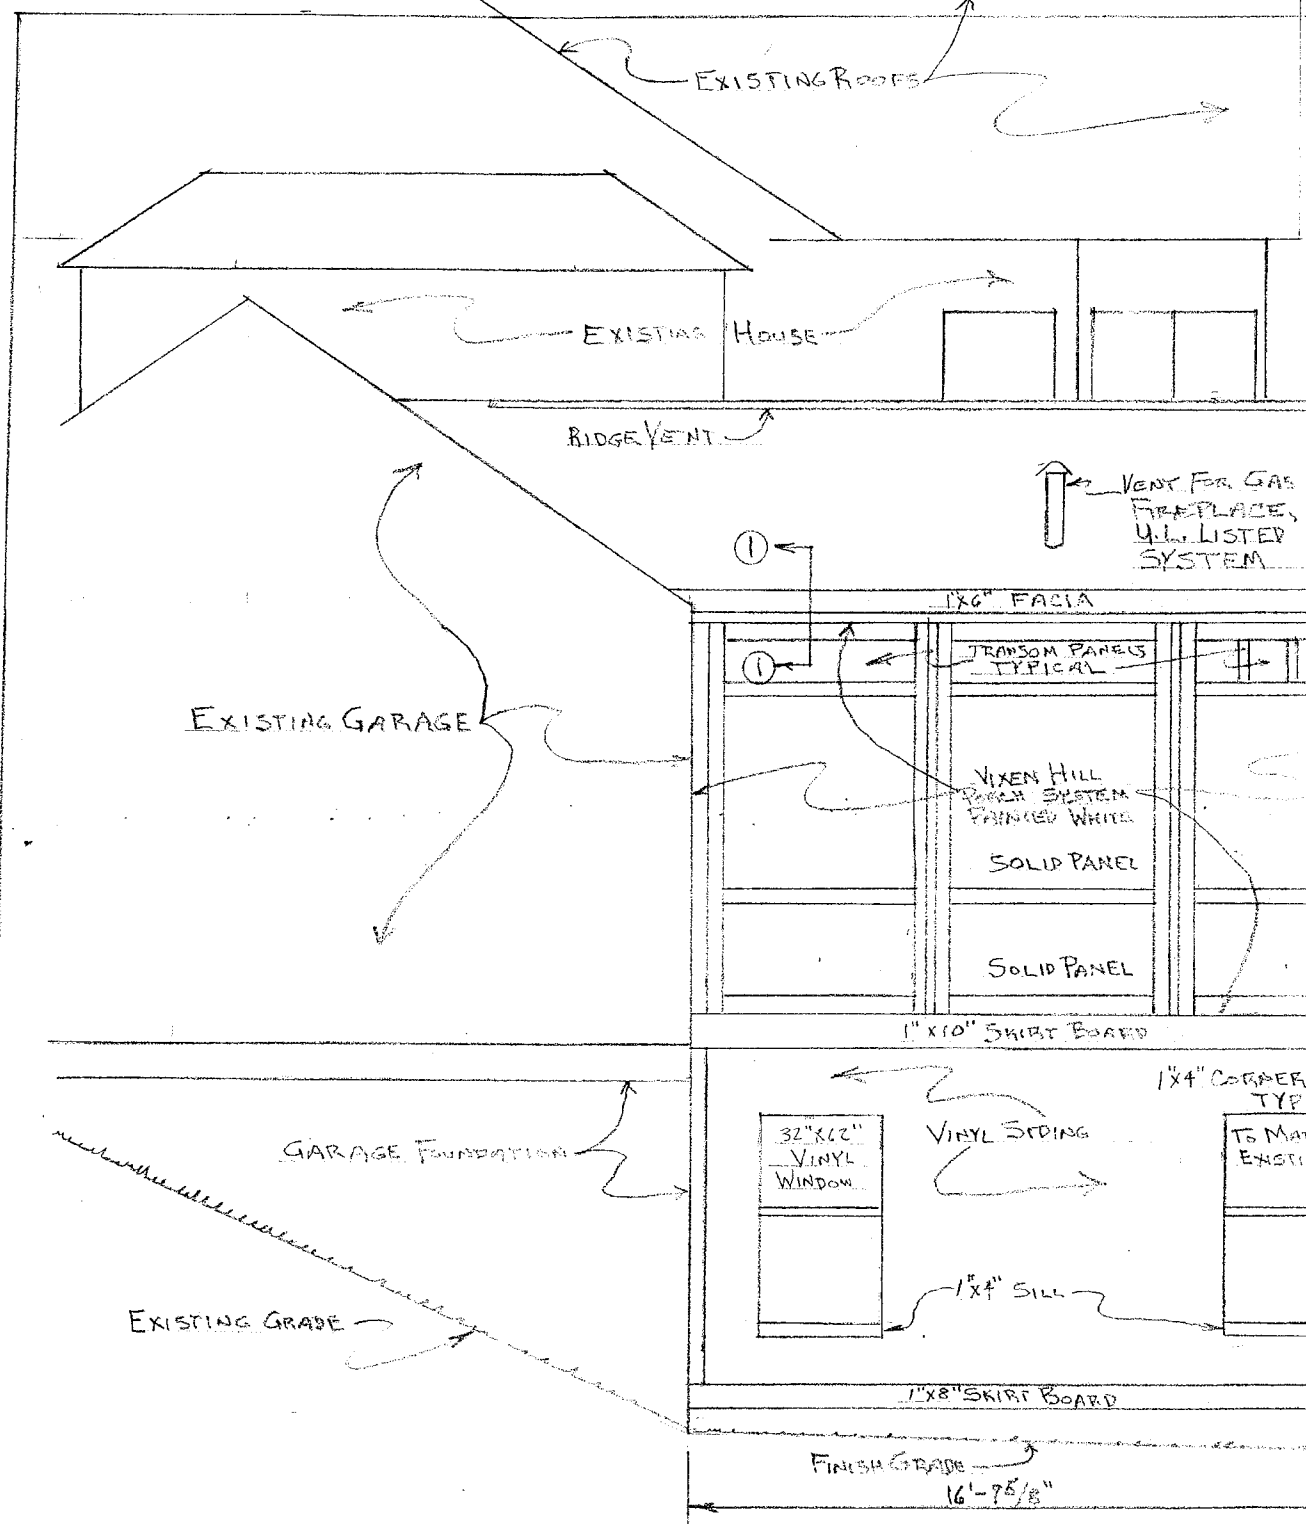 EXISTING ROOFS
EXISTING HOUSE
RIDGE VENT
VENT FOR GAS
FIREPLACE,
U.L. LISTED
SYSTEM
1
1"X6" FACIA
1
TRANSOM PANELS
TYPICAL
EXISTING GARAGE
VIXEN HILL
PORCH SYSTEM
PAINTED WHITE
SOLID PANEL
SOLID PANEL
1"X10" SKIRT BOARD
1"X4" CORNER
TYP
32"X62"
VINYL
WINDOW
VINYL SIDING
TO MAT
EXISTI
GARAGE FOUNDATION
1"X4" SILL
EXISTING GRADE
1"X8" SKIRT BOARD
FINISH GRADE
16'-7 5/8"